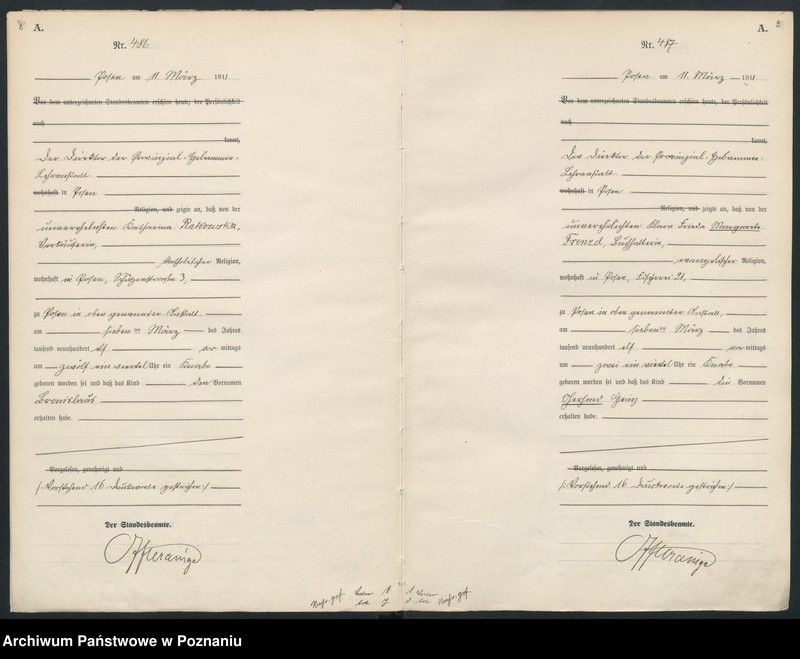 8
A.
Nr. 486.
Posen am 11. März 1911
Vor dem unterzeichneten Standesbeamten erschien heute, der Persönlichkeit
nach
kannt,
Der Direktor der Provinzial-Hebammen-
Lehranstalt
wohnhaft in Posen
Religion, und zeigte an, daß von der
unverehelichten Katharina Ratkowska,
Verkäuferin,
katholischer Religion,
wohnhaft in Posen, Schützenstraße 3,
zu Posen in oben genannter Anstalt
am sieben ten März des Jahres
tausend neunhundert elf mittags
um zwölf ein viertel Uhr ein Knabe
geboren worden sei und daß das Kind den Vornamen
Bronislaus
erhalten habe.
Vorgelesen, genehmigt und
/: Vorstehend 16 Druckworte gestrichen :/
Der Standesbeamte.
A.
Nr. 487.
Posen am 11. März 1911
Vor dem unterzeichneten Standesbeamten erschien heute, der Persönlichkeit
nach
kannt,
Der Direktor der Provinzial-Hebammen-
Lehranstalt
wohnhaft in Posen
Religion, und zeigte an, daß von der
unverehelichten Klara Frieda Margarete
Frenzel, Buchhalterin,
evangelischer Religion,
wohnhaft in Posen, Fischerei 21,
zu Posen in oben genannter Anstalt,
am sieben ten März des Jahres
tausend neunhundert elf vor mittags
um zwei ein viertel Uhr ein Knabe
geboren worden sei und daß das Kind die Vornamen
Gerhard Heinz
erhalten habe.
Vorgelesen, genehmigt und
/: Vorstehend 16 Druckworte gestrichen :/
Der Standesbeamte.
Archiwum Państwowe w Poznaniu